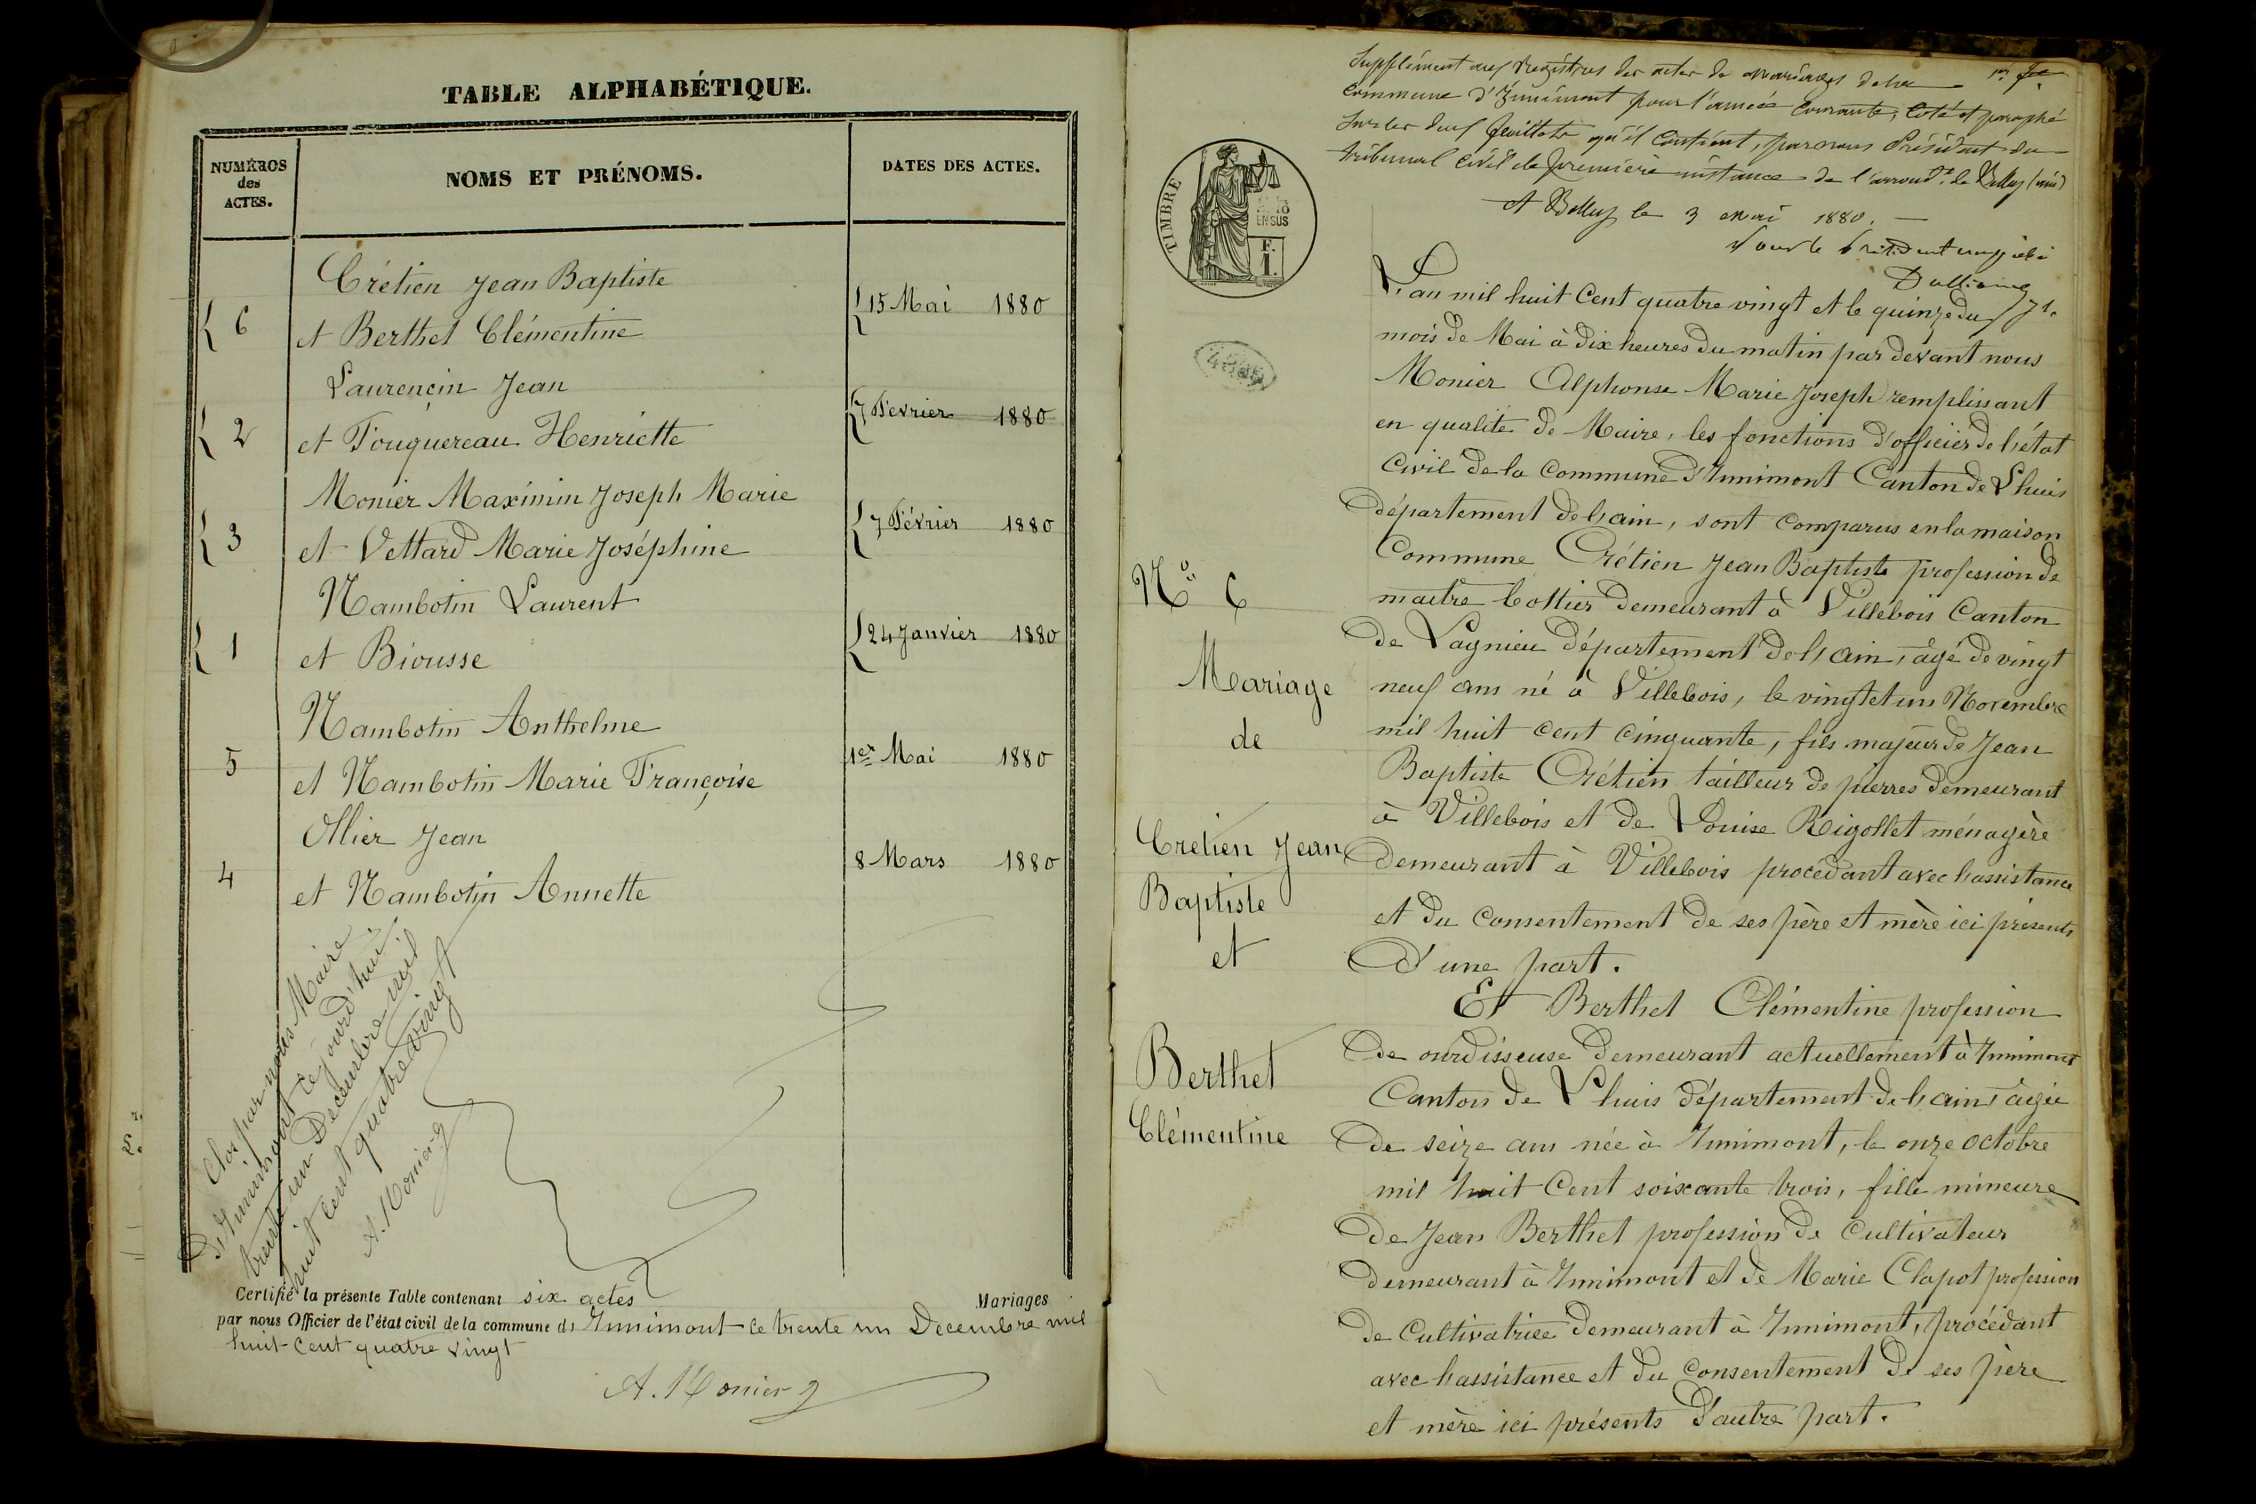 TABLE ALPHABÉTIQUE.
NUMÉROS
des
ACTES.
NOMS ET PRÉNOMS.
DATES DES ACTES.
Crétien Jean Baptiste
6 et Berthet Clémentine 15 Mai 1880
Laurençin Jean
2 et Fouquereau Henriette 7 Février 1880
Monier Maximin Joseph Marie
3 et Vettard Marie Joséphine 7 Février 1880
Nambotin Laurent
1 et Biousse 24 Janvier 1880
Nambotin Anthelme
5 et Nambotin Marie Françoise 1er Mai 1880
Ollier Jean
4 et Nambotin Annette 8 Mars 1880
Clos par nous Maire
d'Innimont ce jourd'hui
trente un Décembre mil
huit cent quatre vingt
A. Monier
Certifié la présente Table contenant six actes Mariages
par nous Officier de l'état civil de la commune d' Innimont le trente un Décembre mil
huit cent quatre vingt
A. Monier
Supplément aux Registres des actes de mariages de la 1er
commune d'Innimont pour l'année courante, coté et paraphé
sur les deux feuillets qu'il contient, par nous Président du
tribunal civil de première instance de l'arrondt. de Belley (ain)
A Belley le 3 Mai 1880.
Pour le Président empêché
TIMBRE
F.
1.
L'an mil huit cent quatre vingt et le quinze du
mois de Mai à dix heures du matin par devant nous
Monier Alphonse Marie Joseph remplissant
en qualité de Maire, les fonctions d'officier de l'état
civil de la commune d'Innimont Canton de Lhuis
département de l'ain, sont comparus en la maison
Commune Crétien Jean Baptiste profession de
maître bottier demeurant à Villebois Canton
de Lagnieu département de l'ain, âgé de vingt
neuf ans né à Villebois, le vingt et un Novembre
mil huit cent cinquante, fils majeur de Jean
Baptiste Crétien tailleur de pierres demeurant
à Villebois et de Louise Rigollet ménagère
demeurant à Villebois procédant avec l'assistance
et du consentement de ses père et mère ici présents
d'une part.
Et Berthet Clémentine profession
de ourdisseuse demeurant actuellement à Innimont
Canton de Lhuis département de l'ain, âgée
de seize ans née à Innimont, le onze octobre
mil huit cent soixante trois, fille mineure
de Jean Berthet profession de cultivateur
demeurant à Innimont et de Marie Clapot profession
de cultivatrice demeurant à Innimont, procédant
avec l'assistance et du consentement de ses père
et mère ici présents d'autre part.
No 6
Mariage
de
Crétien Jean
Baptiste
et
Berthet
Clémentine